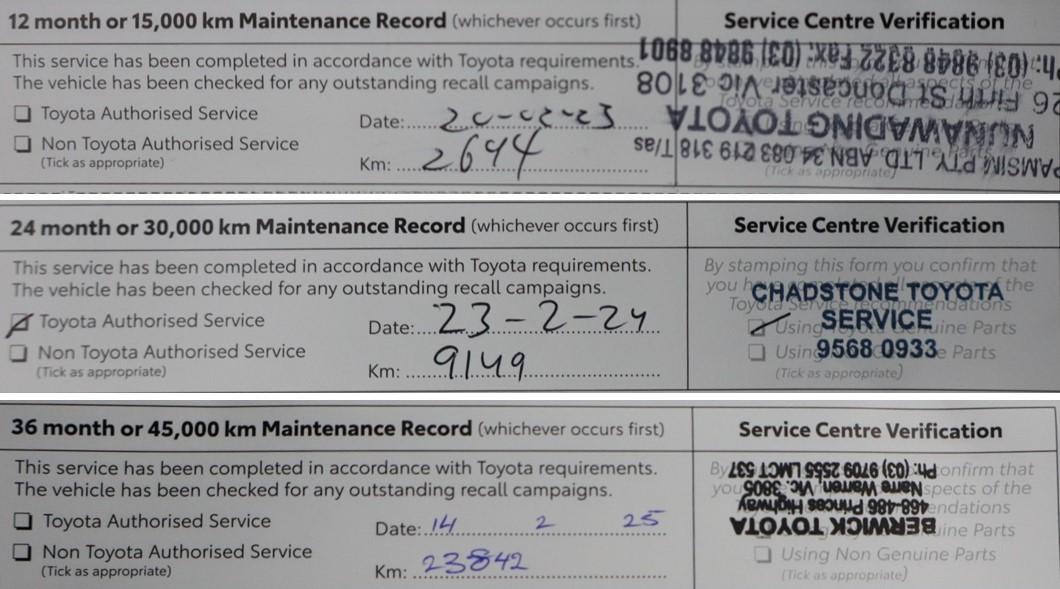 12 month or 15,000 km Maintenance Record (whichever occurs first)
Service Centre Verification
This service has been completed in accordance with Toyota requirements.
The vehicle has been checked for any outstanding recall campaigns.
Toyota Authorised Service
Non Toyota Authorised Service
(Tick as appropriate)
Date: 20-02-23
Km: 2694
PAMSIM PTY LTD ABN 34 083 219 318 T/as
NUNAWADING TOYOTA
26 Firth St Doncaster Vic 3108
Ph: (03) 9848 8322 Fax: (03) 9848 8901
(Tick as appropriate)
24 month or 30,000 km Maintenance Record (whichever occurs first)
Service Centre Verification
This service has been completed in accordance with Toyota requirements.
The vehicle has been checked for any outstanding recall campaigns.
Toyota Authorised Service
Non Toyota Authorised Service
(Tick as appropriate)
Date: 23-2-24
Km: 9149
By stamping this form you confirm that
you have completed all aspects of the
Toyota Service recommendations
Using Toyota Genuine Parts
Using Non Genuine Parts
(Tick as appropriate)
CHADSTONE TOYOTA
SERVICE
9568 0933
36 month or 45,000 km Maintenance Record (whichever occurs first)
Service Centre Verification
This service has been completed in accordance with Toyota requirements.
The vehicle has been checked for any outstanding recall campaigns.
Toyota Authorised Service
Non Toyota Authorised Service
(Tick as appropriate)
Date: 14 2 25
Km: 23842
By confirm that
you aspects of the
endations
uine Parts
Using Non Genuine Parts
(Tick as appropriate)
BERWICK TOYOTA
468-486 Princes Highway
Narre Warren, Vic. 3805
Ph: (03) 9709 2555 LMCT 537